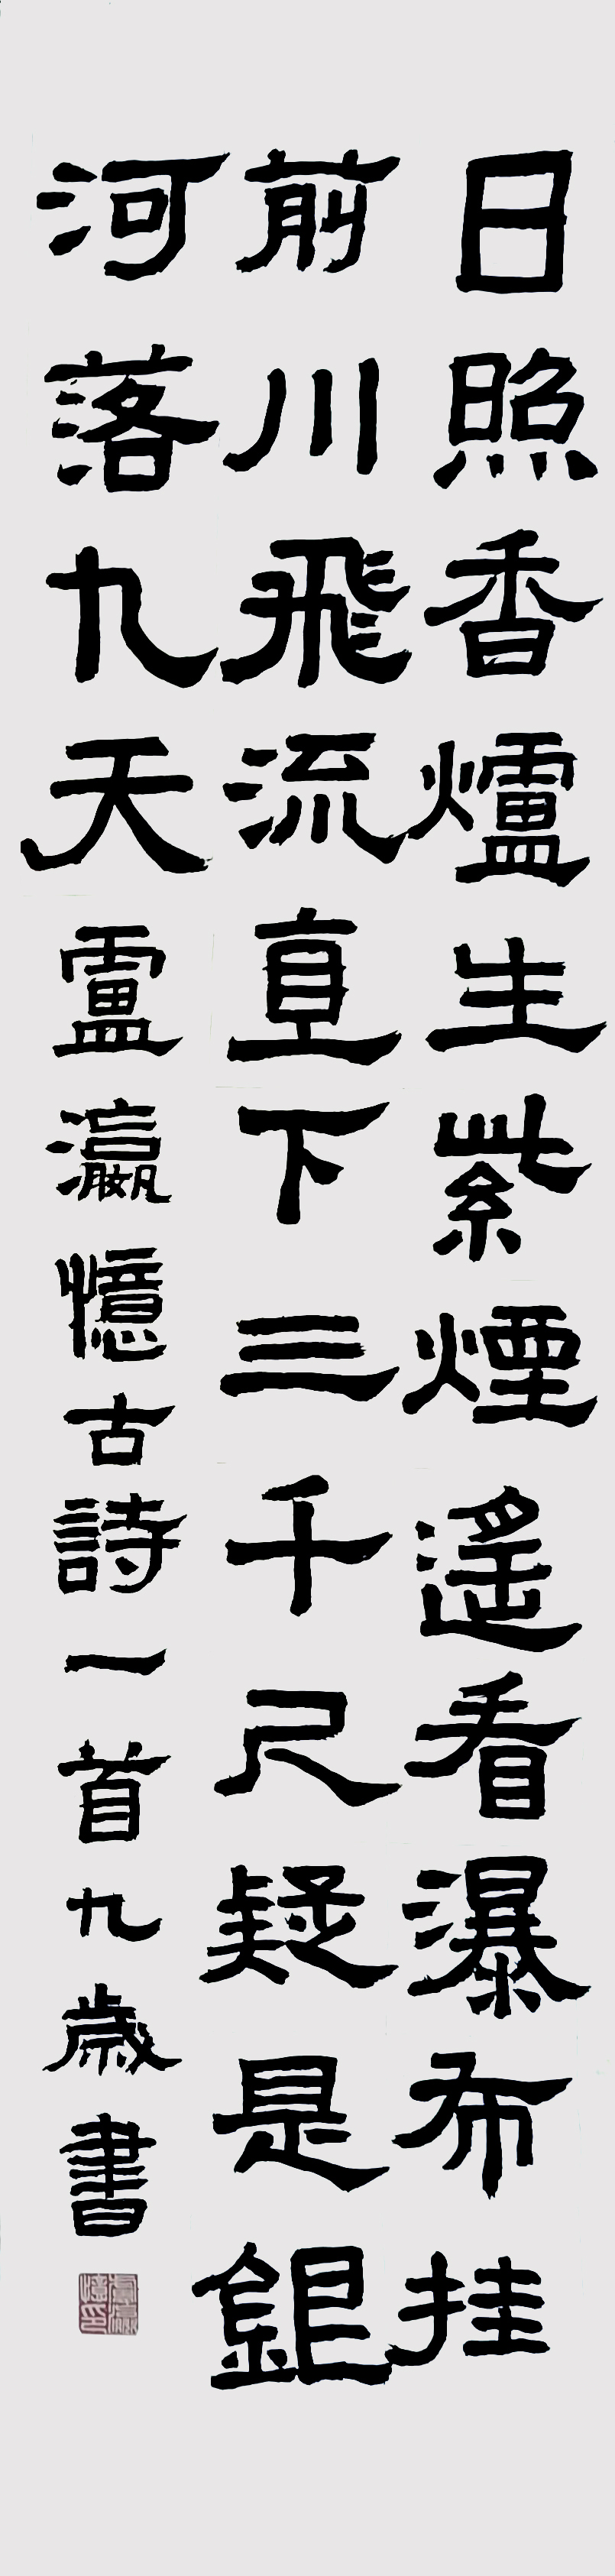 日照香爐生紫煙遥看瀑布挂
前川飛流直下三千尺疑是銀
河落九天盧瀛憶古詩一首九歲書